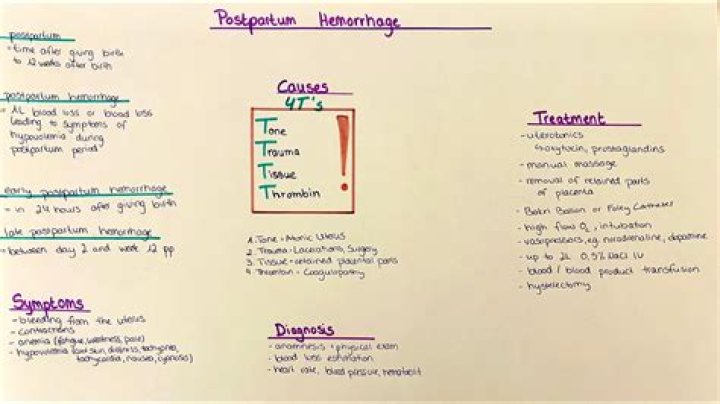 Postpartum Hemorrhage
postpartum
= time after giving birth
to 12 weeks after birth
postpartum hemorrhage
= 1L blood loss or blood loss
leading to symptoms of
hypovolemia during
postpartum period
early postpartum hemorrhage
= in 24 hours after giving birth
late postpartum hemorrhage
= between day 2 and week 12 pp
Symptoms
- bleeding from the uterus
- contractions
- anemia (fatigue, weakness, pale)
- hypovolemia (cold skin, dizziness, tachypnea,
tachycardia, nausea, cyanosis)
Causes
4T's
Tone
Trauma
Tissue
Thrombin
!
1. Tone = Atonic Uterus
2. Trauma = Lacerations, Surgery
3. Tissue = retained placental parts
4. Thrombin = Coagulopathy
Diagnosis
- anamnesis + physical exam
- blood loss estimation
- heart rate, blood pressure, hematocrit
Treatment
- uterotonics
↳ oxytocin, prostaglandins
- manual massage
- removal of retained parts
of placenta
- Bakri Balloon or Foley Catheter
- high flow O₂, intubation
- vasopressors, e.g. noradrenaline, dopamine
- up to 2L 0,9% NaCl IV
- blood / blood product transfusion
- hysterectomy